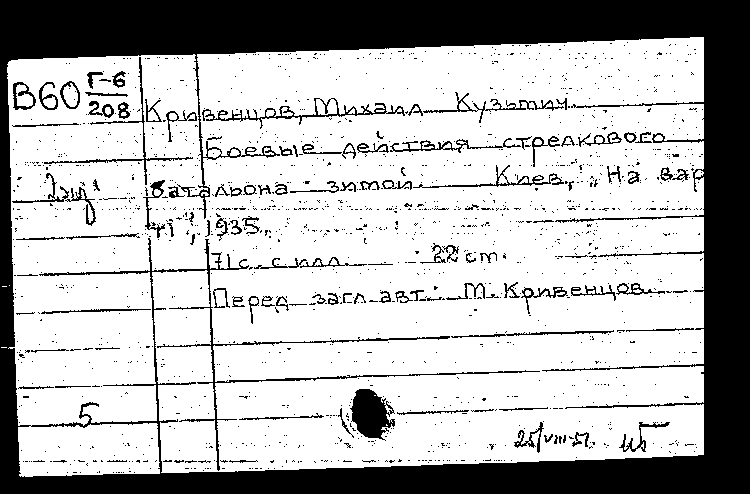 В60 Г-6
208
Кривенцов, Михаил Кузьмич.
Боевые действия стрелкового
2 экз.
батальона зимой. Киев, "На вар
ті", 1935.
71 с. с илл. 22 cm.
Перед загл. авт.: М. Кривенцов.
5
25/VIII-51.